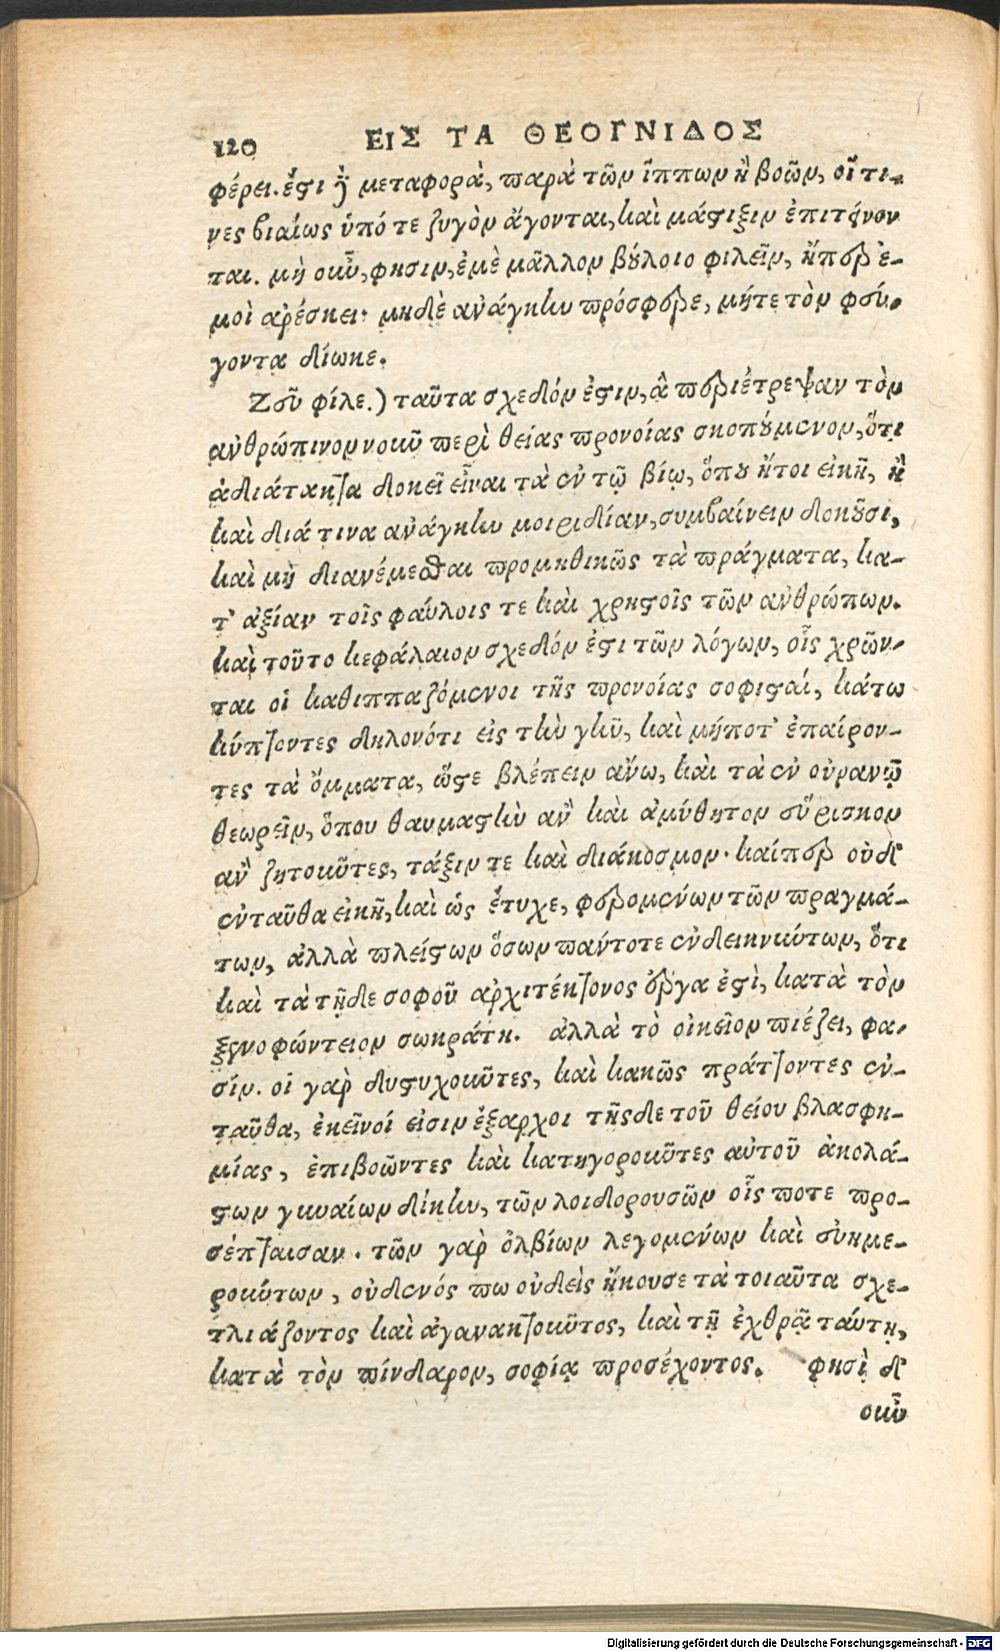 120 ΕΙΣ ΤΑ ΘΕΟΓΝΙΔΟΣ
φέρει. ἔστι δὲ μεταφορὰ, παρὰ τῶν ἵππων ἢ βοῶν, οἵ τι-
νες βιαίως ὑπό τε ζυγὸν ἄγονται, καὶ μάστιξιν ἐπιτείνον
ται. μὴ οὖν, φησιν, ἐμὲ μᾶλλον βούλοιο φιλεῖν, ἤπερ ἐ-
μοὶ ἀρέσκει· μηδὲ ἀνάγκην πρόσφερε, μήτε τὸν φεύ-
γοντα δίωκε.
Ζεῦ φίλε.) ταῦτα σχεδόν ἐστιν, ἃ περιέτρεψαν τὸν
ἀνθρώπινον νοῦν περὶ θείας προνοίας σκοπούμενον, ὅτι
ἀδιάτακτα δοκεῖ εἶναι τὰ ἐν τῷ βίῳ, ὅπου ἤτοι εἰκῆ, ἢ
καὶ διά τινα ἀνάγκην μοιριδίαν, συμβαίνειν δοκοῦσι,
καὶ μὴ διανέμεσθαι προμηθικῶς τὰ πράγματα, κα-
τ' ἀξίαν τοῖς φαύλοις τε καὶ χρηστοῖς τῶν ἀνθρώπων.
καὶ τοῦτο κεφάλαιον σχεδόν ἐστι τῶν λόγων, οἷς χρῶν-
ται οἱ καθιππαζόμενοι τῆς προνοίας σοφισταί, κάτω
κύπτοντες δηλονότι εἰς τὴν γῆν, καὶ μήποτ' ἐπαίρον-
τες τὰ ὄμματα, ὥστε βλέπειν ἄνω, καὶ τὰ ἐν οὐρανῷ
θεωρεῖν, ὅπου θαυμαστὴν ἂν καὶ ἀμύθητον εὕρισκον
ἂν ζητοῦντες, τάξιν τε καὶ διάκοσμον· καίπερ οὐδ'
ἐνταῦθα εἰκῆ, καὶ ὡς ἔτυχε, φερομένων τῶν πραγμά-
των, ἀλλὰ πλείστων ὅσων πάντοτε ἐνδεικνύντων, ὅτι
καὶ τὰ τῇδε σοφοῦ ἀρχιτέκτονος ἔργα ἐστὶ, κατὰ τὸν
ξενοφώντειον σωκράτη. ἀλλὰ τὸ οἰκεῖον πιέζει, φα-
σίν. οἱ γὰρ δυστυχοῦντες, καὶ κακῶς πράττοντες ἐν-
ταῦθα, ἐκεῖνοί εἰσιν ἔξαρχοι τῆσδε τοῦ θείου βλασφη-
μίας, ἐπιβοῶντες καὶ κατηγοροῦντες αὐτοῦ ἀκολά-
στων γυναίων δίκην, τῶν λοιδορουσῶν οἷς ποτε προ-
σέπταισαν. τῶν γὰρ ὀλβίων λεγομένων καὶ εὐημε-
ρούντων, οὐδενός πω οὐδεὶς ἤκουσε τὰ τοιαῦτα σχε-
τλιάζοντος καὶ ἀγανακτοῦντος, καὶ τῇ ἐχθρᾷ ταύτῃ,
κατὰ τὸν πίνδαρον, σοφίᾳ προσέχοντος. φησὶ δ'
οὖν
Digitalisierung gefördert durch die Deutsche Forschungsgemeinschaft - DFG